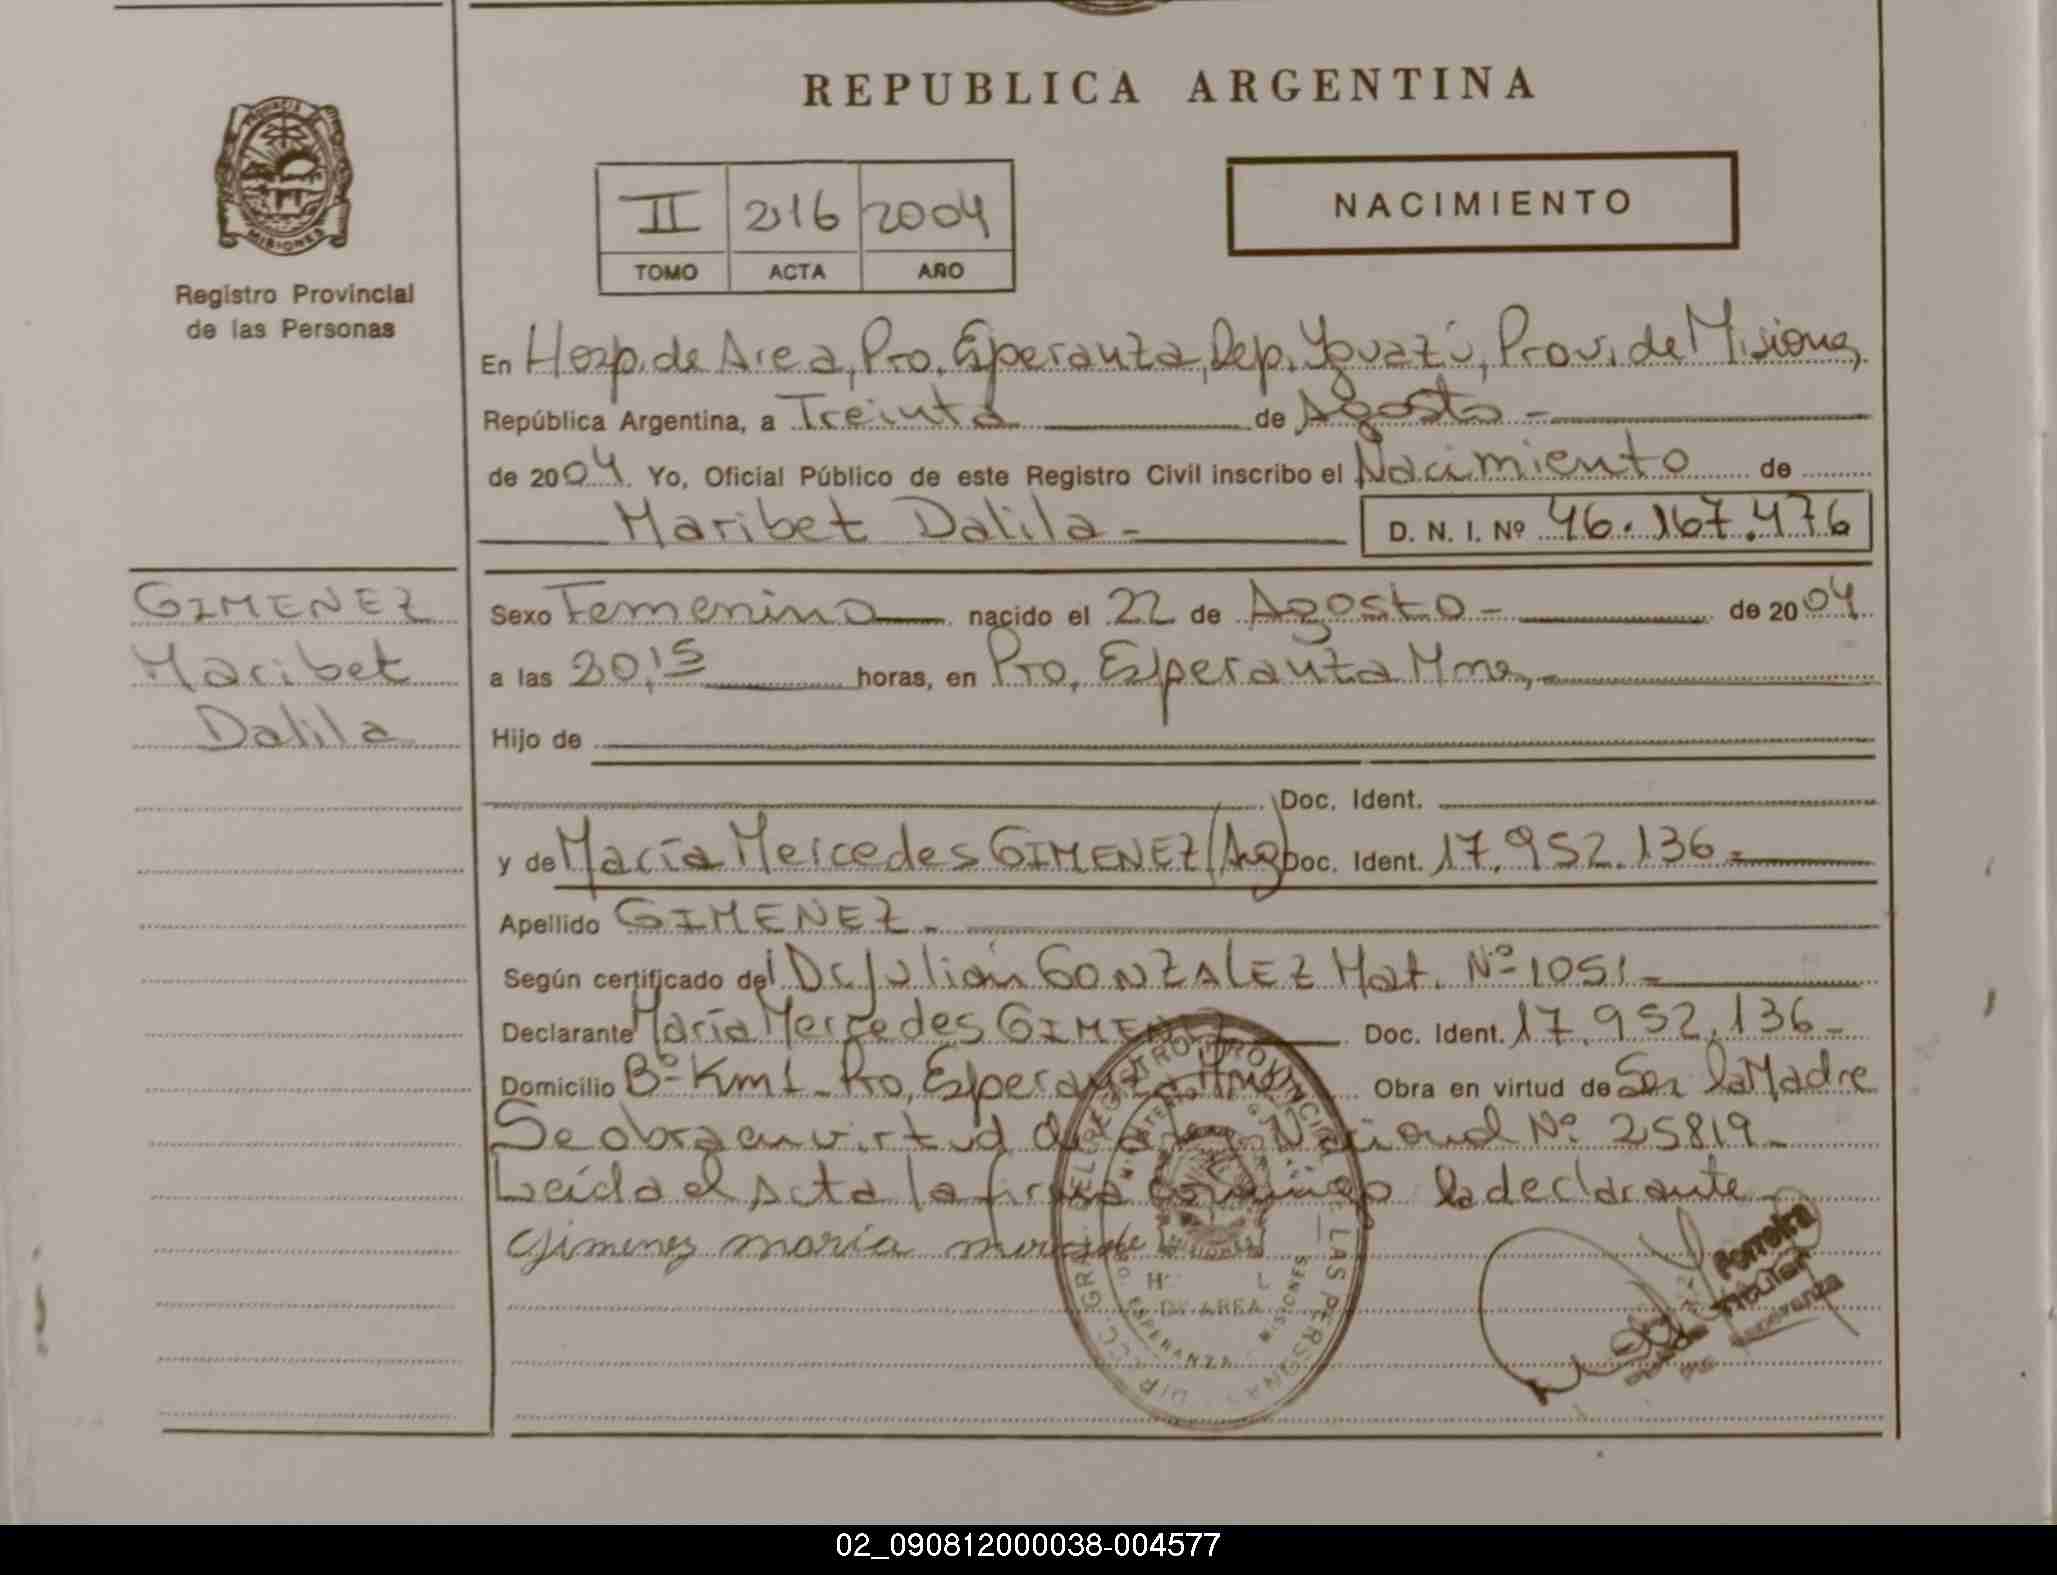 REPUBLICA ARGENTINA
PROVINCIA
MISIONES
Registro Provincial
de las Personas
II 216 2004
TOMO ACTA AÑO
NACIMIENTO
En Hosp. de Area, Pto. Esperanza, Dep. Yguazú, Prov. de Misiones,
República Argentina, a Treinta de Agosto -
de 2004. Yo, Oficial Público de este Registro Civil inscribo el Nacimiento de
Maribet Dalila - D. N. I. Nº 46.167.476
GIMENEZ
Maribet
Dalila
Sexo Femenino nacido el 22 de Agosto - de 2004
a las 20,15 horas, en Pto. Esperanza Mnes, -
Hijo de
Doc. Ident.
y de María Mercedes GIMENEZ (Arg) Doc. Ident. 17.952.136 -
Apellido GIMENEZ -
Según certificado del Dr. Julian GONZALEZ Mat. Nº 1051 -
Declarante María Mercedes GIMENEZ Doc. Ident. 17.952.136 -
Domicilio Bº Km 1 - Pto. Esperanza Mnes Obra en virtud de Ser la Madre
Se obra en virtud de la Ley Nacional Nº 25819 -
Leída el Acta la firma conmigo la declarante -
Gimenez maría
REGISTRO PROVINCIAL DE LAS PERSONAS
DE AREA
ESPERANZA MISIONES
Ferreira
Titular
Esperanza
02_090812000038-004577